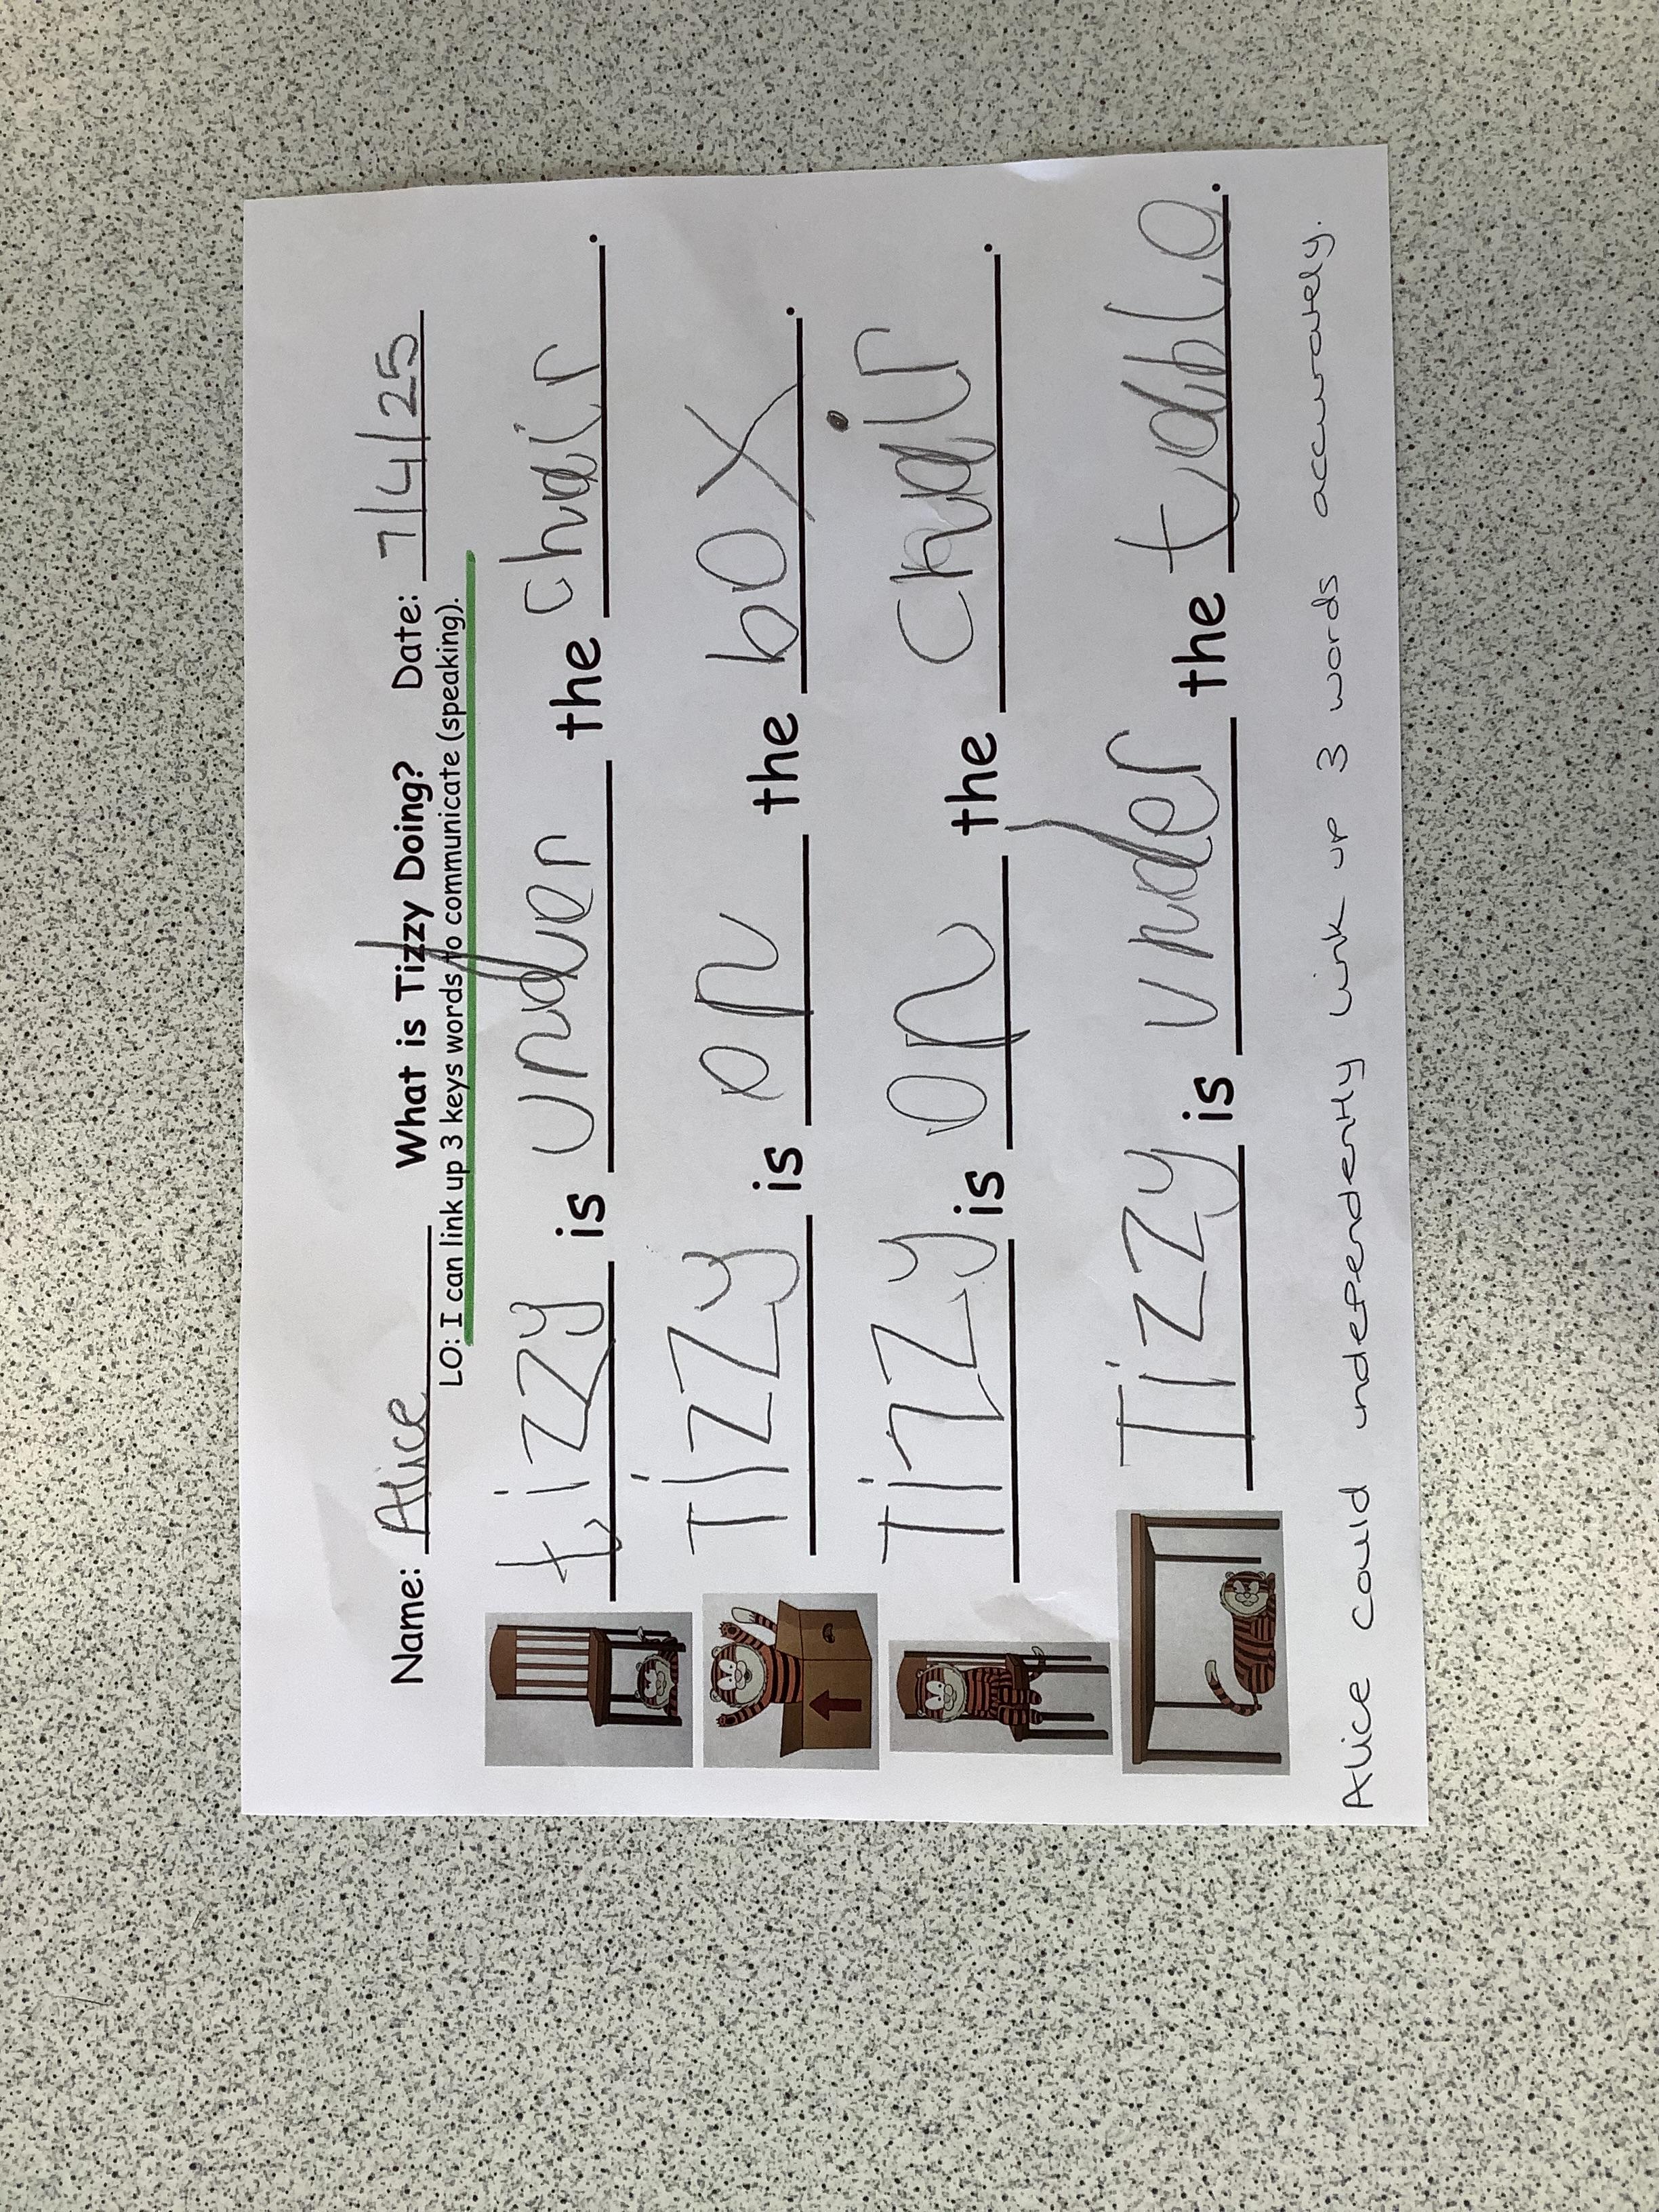 Name: Alice What is Tizzy Doing? Date: 7/4/25
LO: I can link up 3 keys words to communicate (speaking).
tizzy is under the chair.
Tizzy is on the box.
Tizzy is on the chair.
Tizzy is under the table.
Alice could independently link up 3 words accurately.